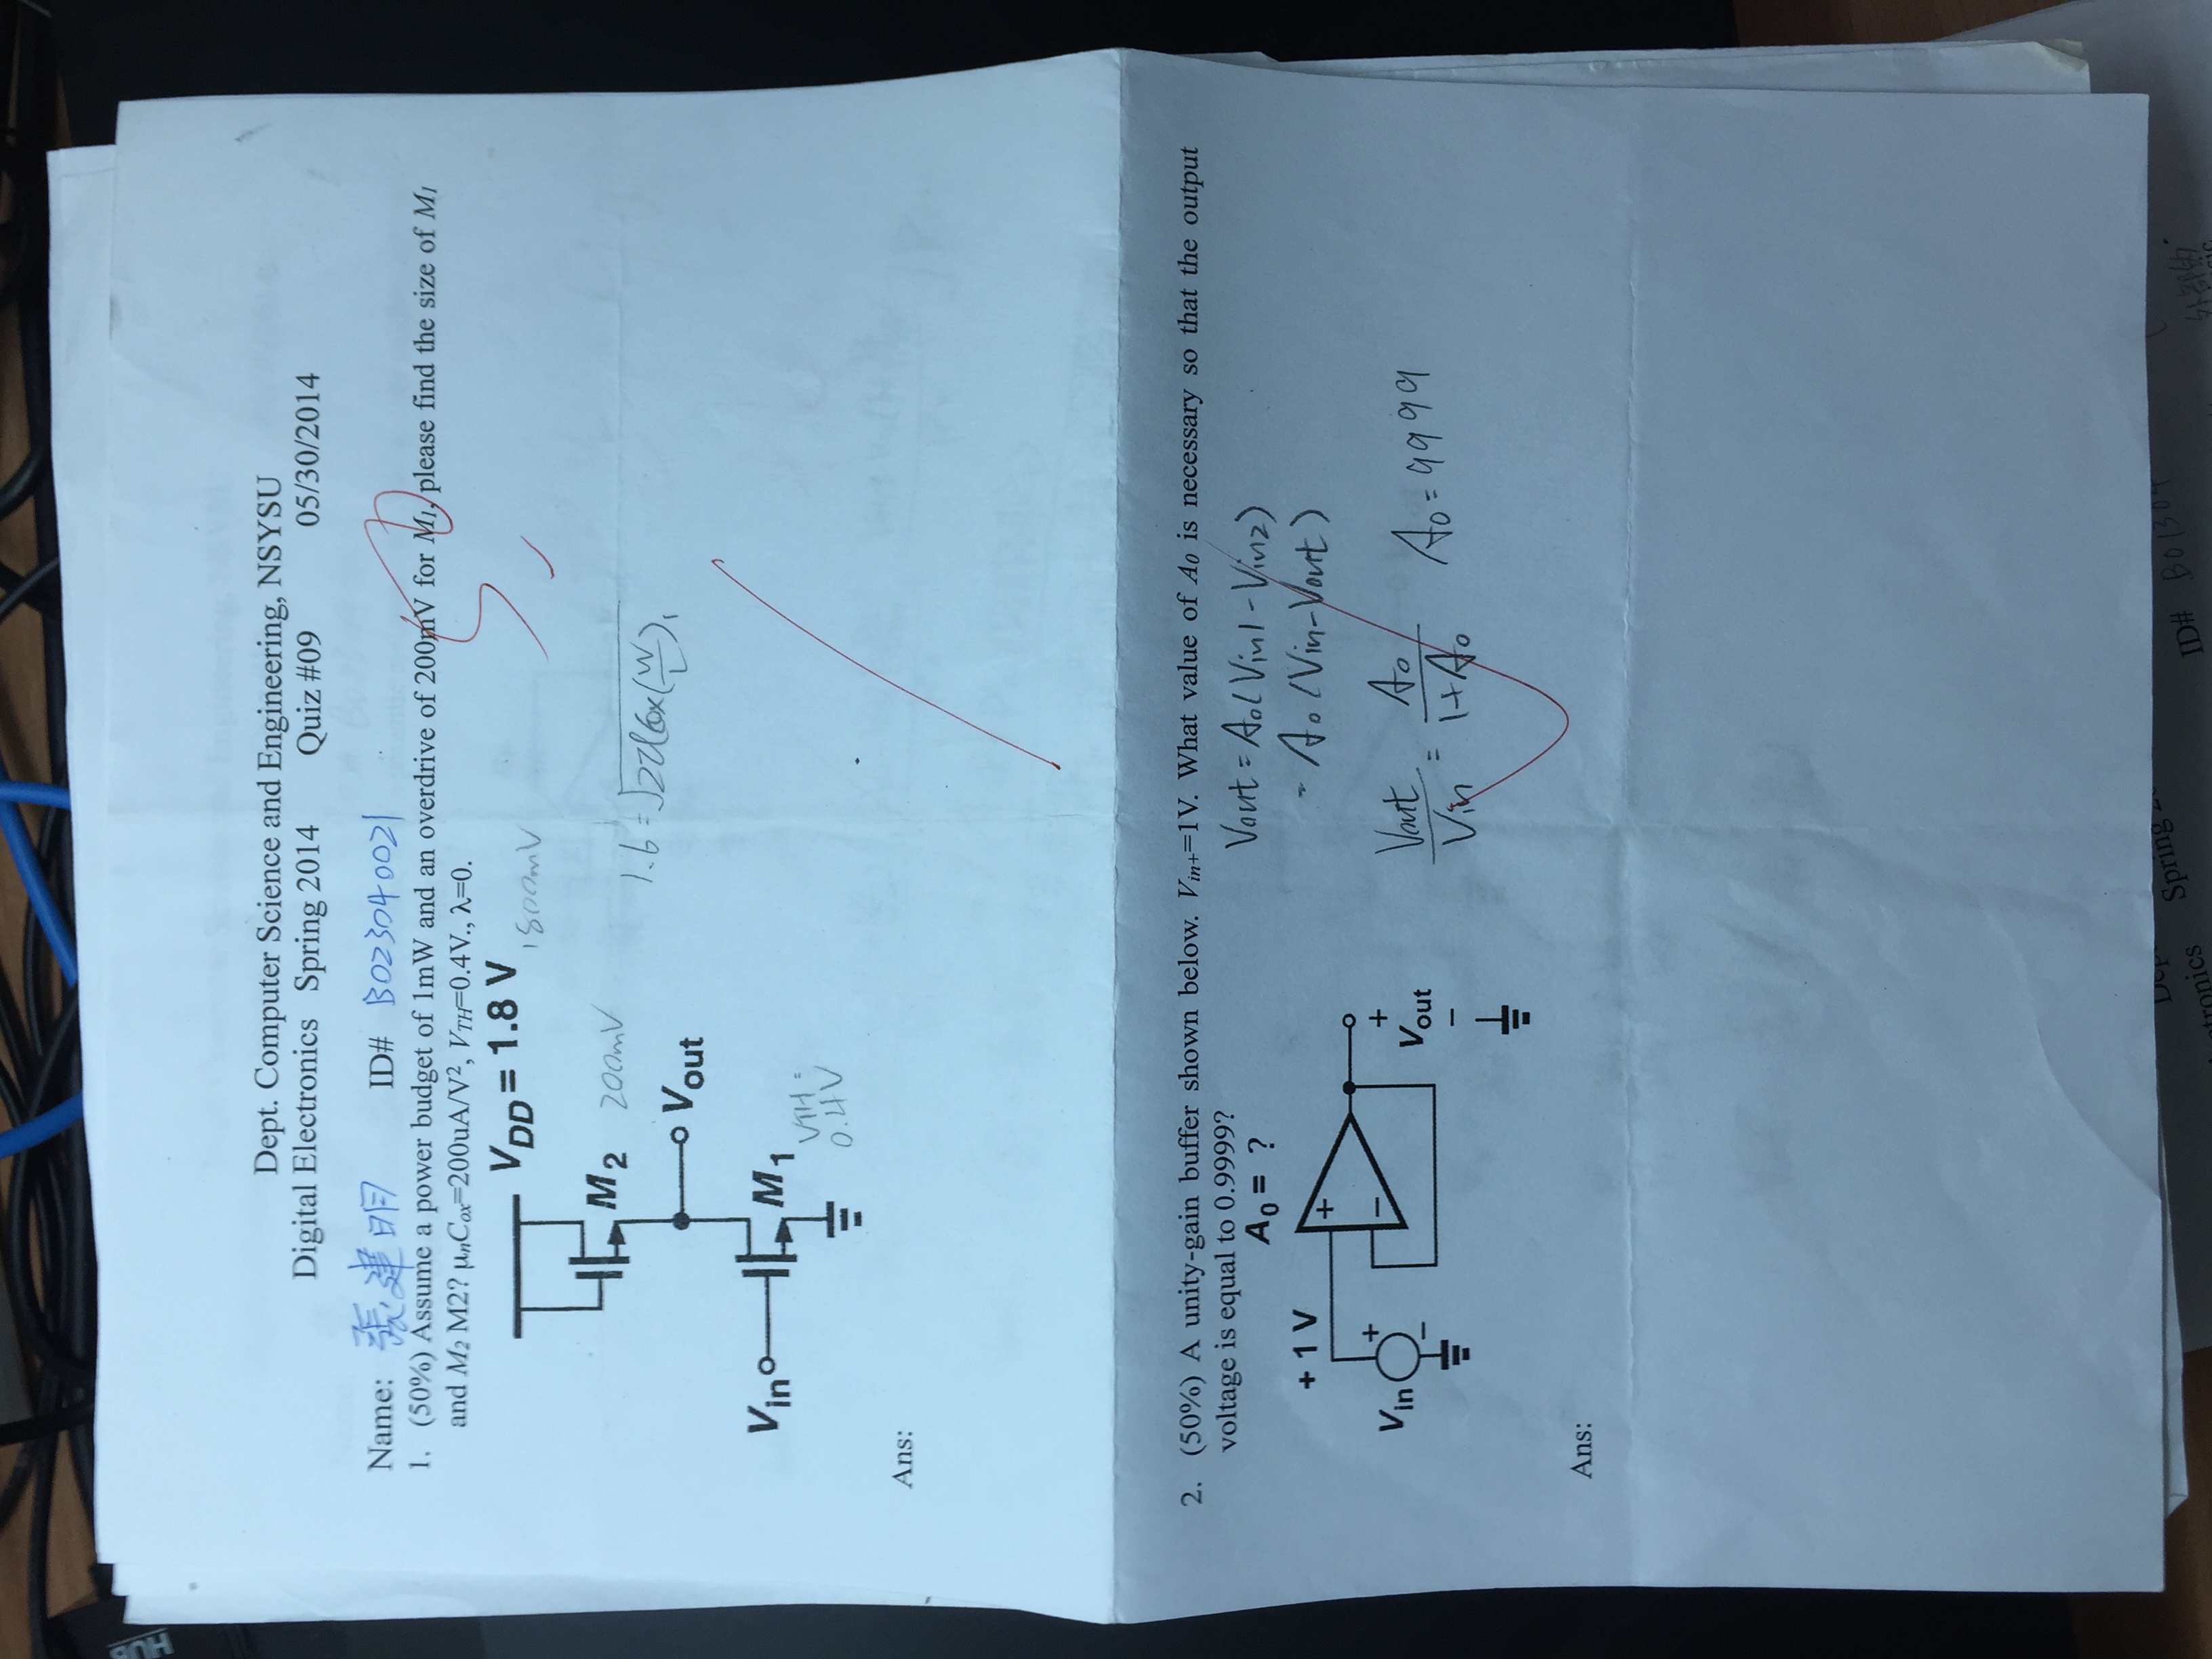 HUB
Dept. Computer Science and Engineering, NSYSU
Digital Electronics Spring 2014 Quiz #09 05/30/2014
Name: 張建明 ID# B023040021
50
1. (50%) Assume a power budget of 1mW and an overdrive of 200mV for M1, please find the size of M1
and M2 M2? μnCox=200uA/V², VTH=0.4V., λ=0.
VDD = 1.8 V 1800mV
M2 200mV
Vout
Vin M1
VTH =
0.4V
Ans:
2. (50%) A unity-gain buffer shown below. Vin+=1V. What value of A0 is necessary so that the output
voltage is equal to 0.9999?
A0 = ?
+ 1 V
+
−
Vin
+
−
+
Vout
−
Vout = A0(Vin1 - Vin2)
= A0 (Vin-Vout)
Vout/Vin = A0/1+A0 A0=9999
Ans:
Spring
ID# B01304